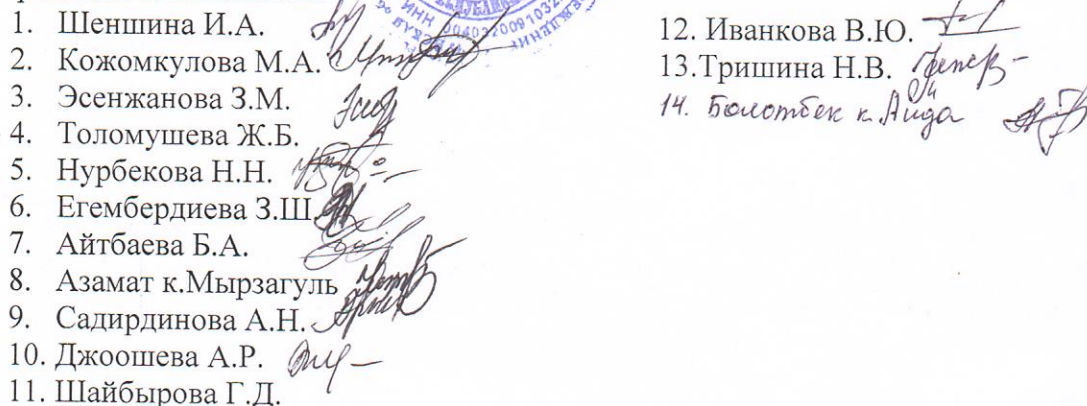 1. Шеншина И.А.
2. Кожомкулова М.А.
3. Эсенжанова З.М.
4. Толомушева Ж.Б.
5. Нурбекова Н.Н.
6. Егембердиева З.Ш.
7. Айтбаева Б.А.
8. Азамат к.Мырзагуль
9. Садирдинова А.Н.
10. Джоошева А.Р.
11. Шайбырова Г.Д.
12. Иванкова В.Ю.
13.Тришина Н.В.
14. Болотбек к. Аида
ИНН